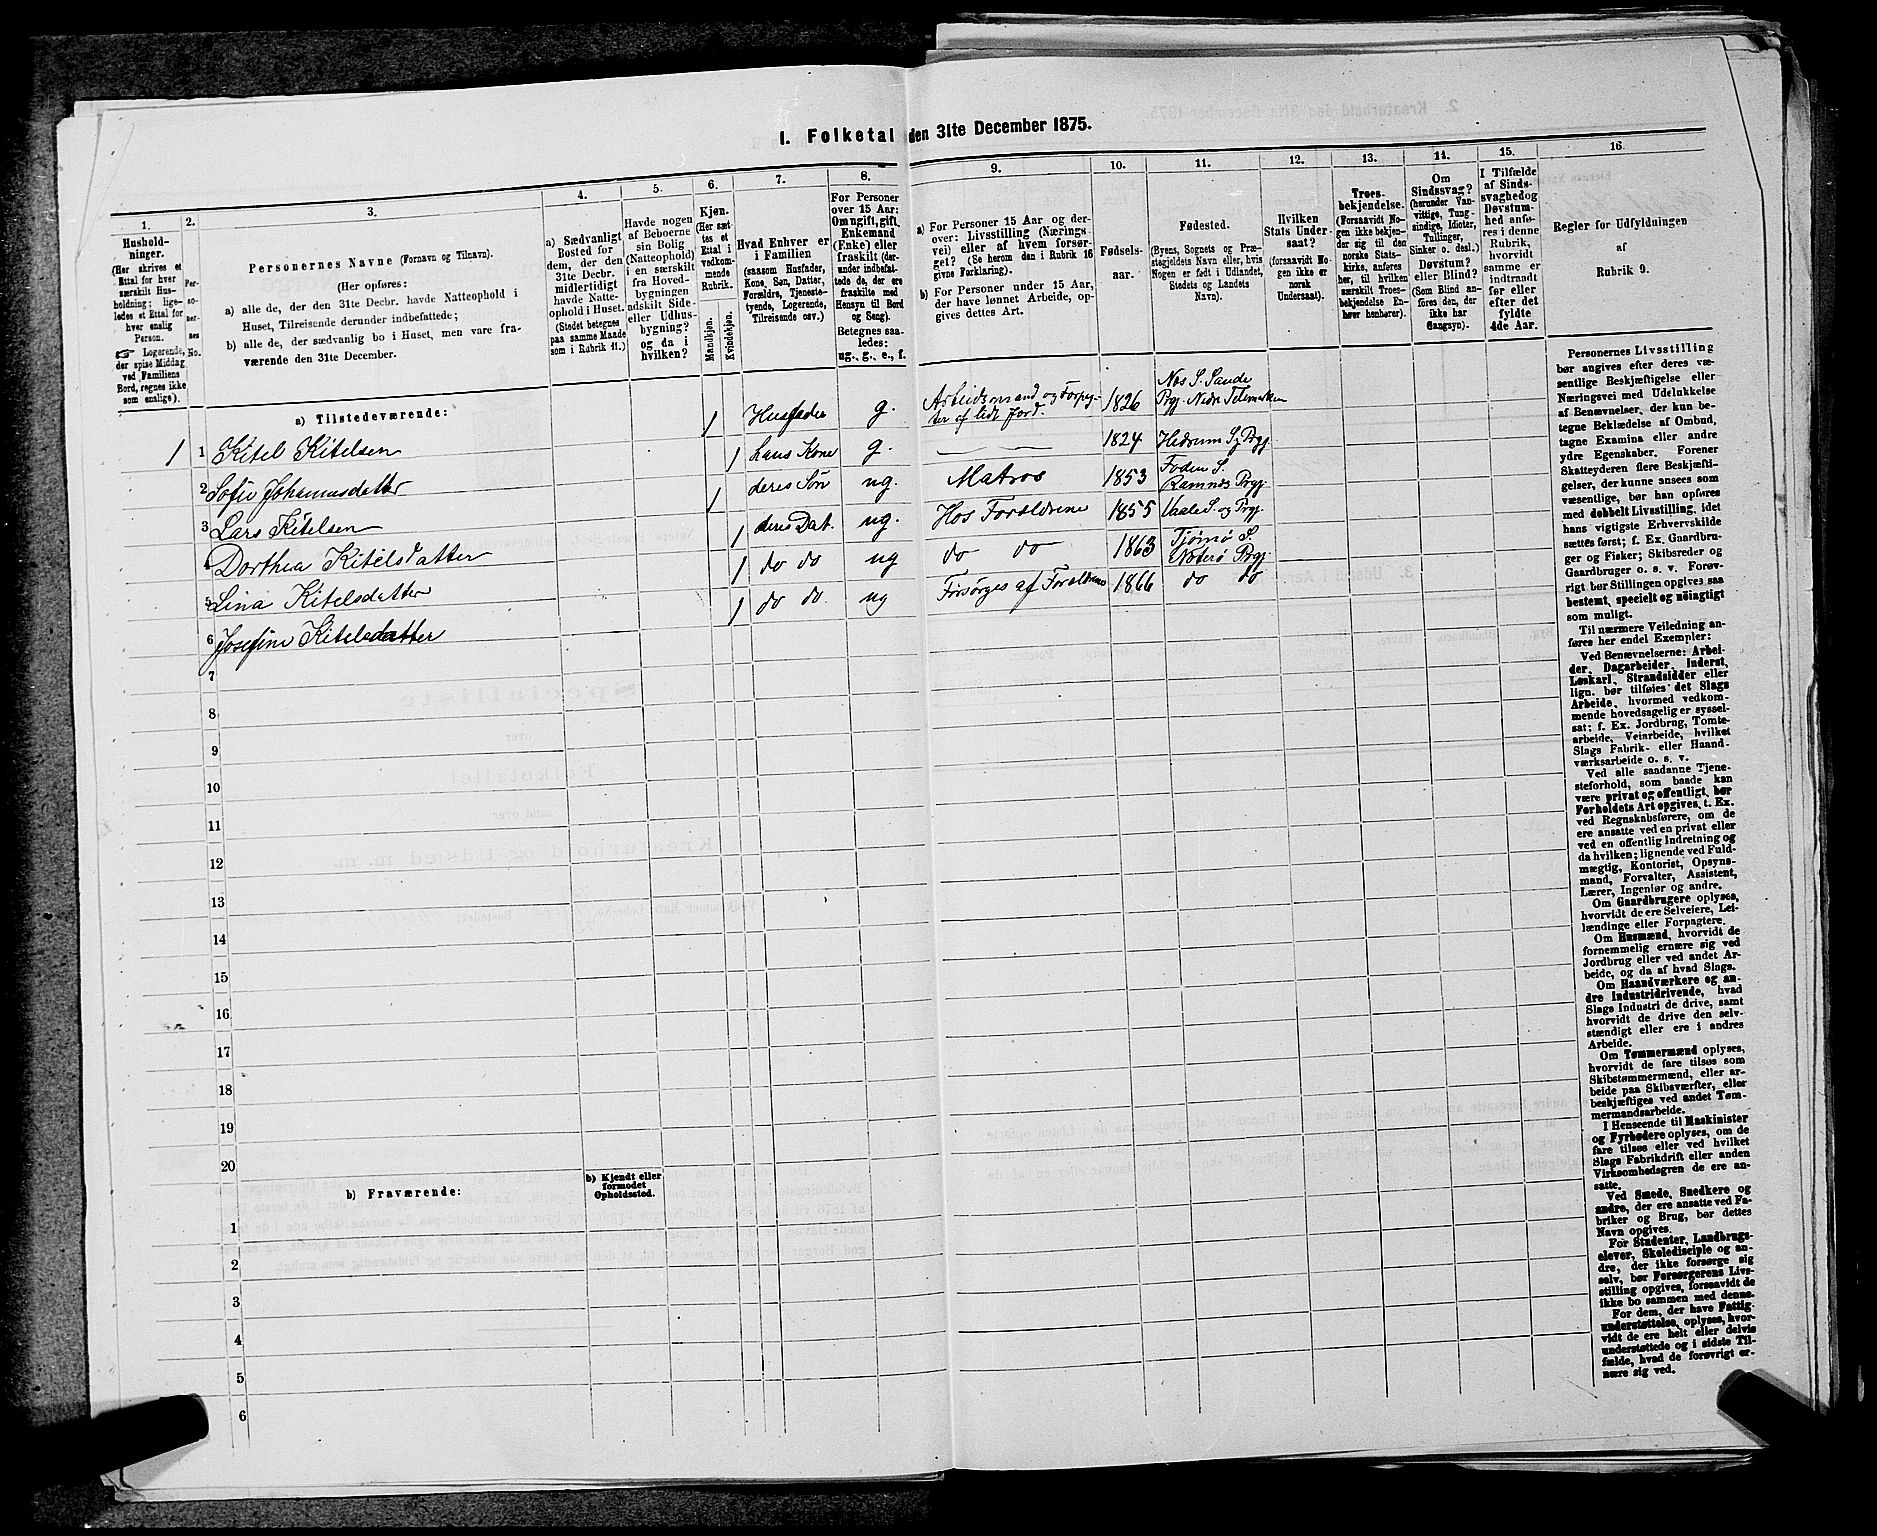 I. Folketal den 31te December 1875.
1.
2.
3.
4.
5.
6.
7.
8.
9.
10.
11.
12.
13.
14.
15.
16.
Hushold-
ninger.
(Her skrives et
Ettal for hver
særskilt Hus-
holdning; lige-
ledes et Ettal for
hver enslig
Person.
☞ Logerende,
der spise Middag
ved Familiens
Bord, regnes ikke
som enslige).
Per-
so-
ner-
nes
No.
Personernes Navne (Fornavn og Tilnavn).
(Her opføres:
a) alle de, der den 31te Decbr. havde Natteophold i
Huset, Tilreisende derunder indbefattede;
b) alle de, der sædvanlig bo i Huset, men vare fra-
værende den 31te December.
a) Sædvanligt
Bosted for
dem, der den
31te Decbr.
midlertidigt
havde Natte-
ophold i Huset.
(Stedet betegnes
paa samme Maade
som i Rubrik 11.)
Havde nogen
af Beboerne
sin Bolig
(Natteophold)
i en særskilt
fra Hoved-
bygningen
adskilt Side-
eller Udhus-
bygning?
og da i
hvilken?
Kjøn.
(Her sæt-
tes et
Ettal i
vedkom-
mende
Rubrik.
Mandkjøn.
Kvindekjøn.
Hvad Enhver er
i Familien
(saasom Husfader,
Kone, Søn, Datter,
Forældre, Tjeneste-
tyende, Logerende,
Tilreisende osv.)
For Personer
over 15 Aar:
Om ugift, gift,
Enkemand
(Enke) eller
fraskilt (der-
under indbefat-
tede de, der ere
fraskilte med
Hensyn til Bord
og Seng).
Betegnes saa-
ledes:
ug., g., e., f.
a) For Personer 15 Aar og der-
over: Livsstilling (Nærings-
vei) eller af hvem forsør-
get? (Se herom den i Rubrik 16
gives Forklaring).
b) For Personer under 15 Aar,
der have lønnet Arbeide, op-
gives dettes Art.
Fødsels-
aar.
Fødested.
(Byens, Sognets og Præ-
stegjeldets Navn eller, hvis
Nogen er født i Udlandet,
Stedets og Landets
Navn).
Hvilken
Stats Under-
saat?
(forsaavidt No-
gen ikke er
norsk
Undersaat).
Troes-
bekjendelse.
(Forsaavidt No-
gen ikke bekjen-
der sig til den
norske Stats-
kirke, anføres
her, til hvilken
særskilt Troes-
bekjendelse En-
hver henhører).
Om
Sindssvag?
(herunder Van-
vittige, Tung-
sindige, Idioter,
Tullinger,
Sinker o. desl.)
Døvstum?
eller Blind?
(Som Blind an-
føres den, der
ikke har
Gangsyn).
I Tilfælde
af Sinds-
svaghed og
Døvstum-
hed anfø-
res i denne
Rubrik,
hvorvidt
samme er
indtraadt
før eller
efter det
fyldte
4de Aar.
Regler for Udfyldningen
af
Rubrik 9.
a) Tilstedeværende:
1 1 Kitel Kitelsen 1 Husfader g. Arbeidsmand og Forpag-
ter af lidt Jord. 1826 Næs S. Saude
Prgj. Nedre Telemarken
2 Sofie Johannesdatter 1 hans Kone g. 1824 Hedrum S. og Prgj.
3 Lars Kitelsen 1 deres Søn ug. Matros 1853 Foden S.
Ramnæs Prgj.
4 Dorthea Kitelsdatter 1 deres Dat. ug. Hos Forældrene 1855 Vaale S. og Prgj.
5 Lina Kitelsdatter 1 do do ug do do 1863 Tjømø S.
Nøterø Prgj.
6 Josefine Kitelsdatter 1 do do. ug Forsørges af Forældrene 1866 do do
7
8
9
10
11
12
13
14
15
16
17
18
19
20
b) Fraværende:
b) Kjendt eller
formodet
Opholdssted.
1
2
3
4
5
6
Personernes Livsstilling
bør angives efter deres væ-
sentlige Beskjæftigelse eller
Næringsvei med Udelukkelse
af Benævnelser, der kun be-
tegne Beklædelse af Ombud,
tagne Examina eller andre
ydre Egenskaber. Forener
Skatteyderen flere Beskjæfti-
gelser, der kunne ansees som
væsentlige, bør han opføres
med dobbelt Livsstilling, idet
hans vigtigste Erhvervskilde
sættes først; f. Ex. Gaardbru-
ger og Fisker; Skibsreder og
Gaardbruger o. s. v. Forøv-
rigt bør Stillingen opgives saa
bestemt, specielt og nöiagtigt
som muligt.
Til nærmere Veiledning an-
føres her endel Exempler:
Ved Benævnelserne: Arbei-
der, Dagarbeider, Inderst,
Løskarl, Strandsidder eller
lign. bør tilføies det Slags
Arbeide, hvormed vedkom-
mende hovedsagelig er syssel-
sat; f. Ex. Jordbrug, Tomte-
arbeide, Veiarbeide, hvilket
Slags Fabrik- eller Haand-
værksarbeide o. s. v.
Ved alle saadanne Tjene-
steforhold, som baade kan
være privat og offentligt, bør
Forholdets Art opgives, t. Ex.
ved Regnskabsførere, om de
ere ansatte ved en privat eller
ved en offentlig Indretning og
da hvilken; lignende ved Fuld-
mægtig, Kontorist, Opsyns-
mand, Forvalter, Assistent,
Lærer, Ingeniør og andre.
Om Gaardbrugere oplyses,
hvorvidt de ere Selveiere, Lei-
lændinge eller Forpagtere.
Om Husmænd, hvorvidt de
fornemmelig ernære sig ved
Jordbrug eller ved andet Ar-
beide, og da af hvad Slags.
Om Haandværkere og an-
dre Industridrivende, hvad
Slags Industri de drive, samt
hvorvidt de drive den selv-
stændigt eller ere i andres
Arbeide.
Om Tømmermænd oplyses,
hvorvidt de fare tilsøs som
Skibstømmermænd, eller ar-
beide paa Skibsværfter, eller
beskjæftiges ved andet Tøm-
mermandsarbeide.
I Henseende til Maskinister
og Fyrbødere oplyses, om de
fare tilsøs eller ved hvilket
Slags Fabrikdrift eller anden
Virksomhedsgren de ere an-
satte.
Ved Smede, Snedkere og
andre, der ere ansatte ved Fa-
briker og Brug, bør dettes
Navn opgives.
For Studenter, Landbrugs-
elever, Skoledisciple og an-
dre, der ikke forsørge sig
selv, bør Forsørgerens Livs-
stilling opgives, forsaavidt de
ikke bo sammen med denne.
For dem, der have Fattig-
understøttelse, oplyses, hvor-
vidt de ere helt eller delvis
understøttede og i sidste Til-
fælde, hvad de forøvrigt er-
nære sig ved.